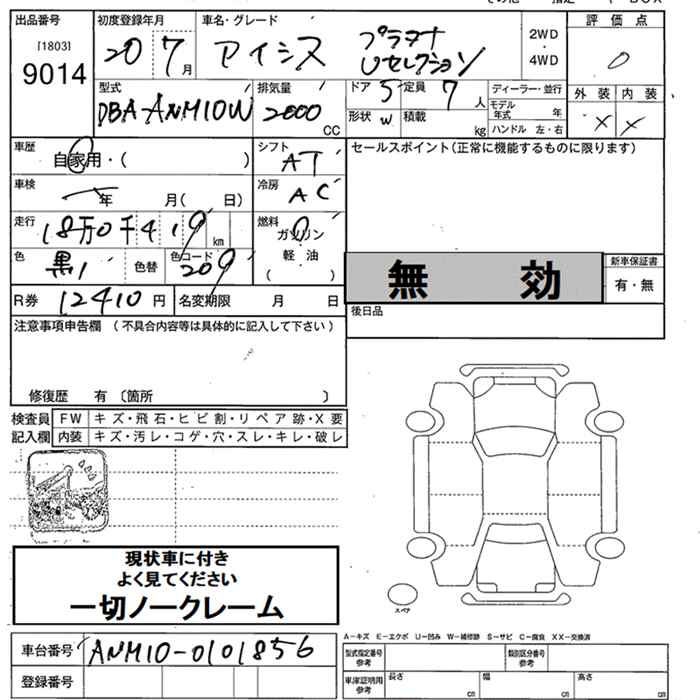 出品番号
[1803]
9014
初度登録年月
20 7月
車名・グレード
アイシス プラタナ
Uセレクション
2WD
・
4WD
評価点
0
外装 内装
× ×
型式
DBA-ANM10W
排気量
2000
CC
ドア 5 定員 7 人
形状 W 積載 kg
ディーラー・並行
モデル年式 年
ハンドル 左・右
車歴
自家用・( )
シフト
AT
セールスポイント(正常に機能するものに限ります)
車検
年 月( 日)
冷房
AC
走行
18万0千419 km
燃料
ガソリン
軽油
( )
色
黒 色替
色コード
209
無 効
新車保証書
有・無
R券 12410円
名変期限 月 日
後日品
注意事項申告欄 (不具合内容等は具体的に記入して下さい)
修復歴 有 〔箇所 〕
検査員
記入欄
FW キズ・飛石・ヒビ割・リペア跡・X要
内装 キズ・汚レ・コゲ・穴・スレ・キレ・破レ
現状車に付き
よく見てください
一切ノークレーム
スペア
A-キズ E-エクボ U-凹み W-補修跡 S-サビ C-腐食 XX-交換済
車台番号 ANM10-0101856
登録番号
型式指定番号
参考
類別区分番号
参考
車庫証明用
参考
長さ cm 幅 cm 高さ cm